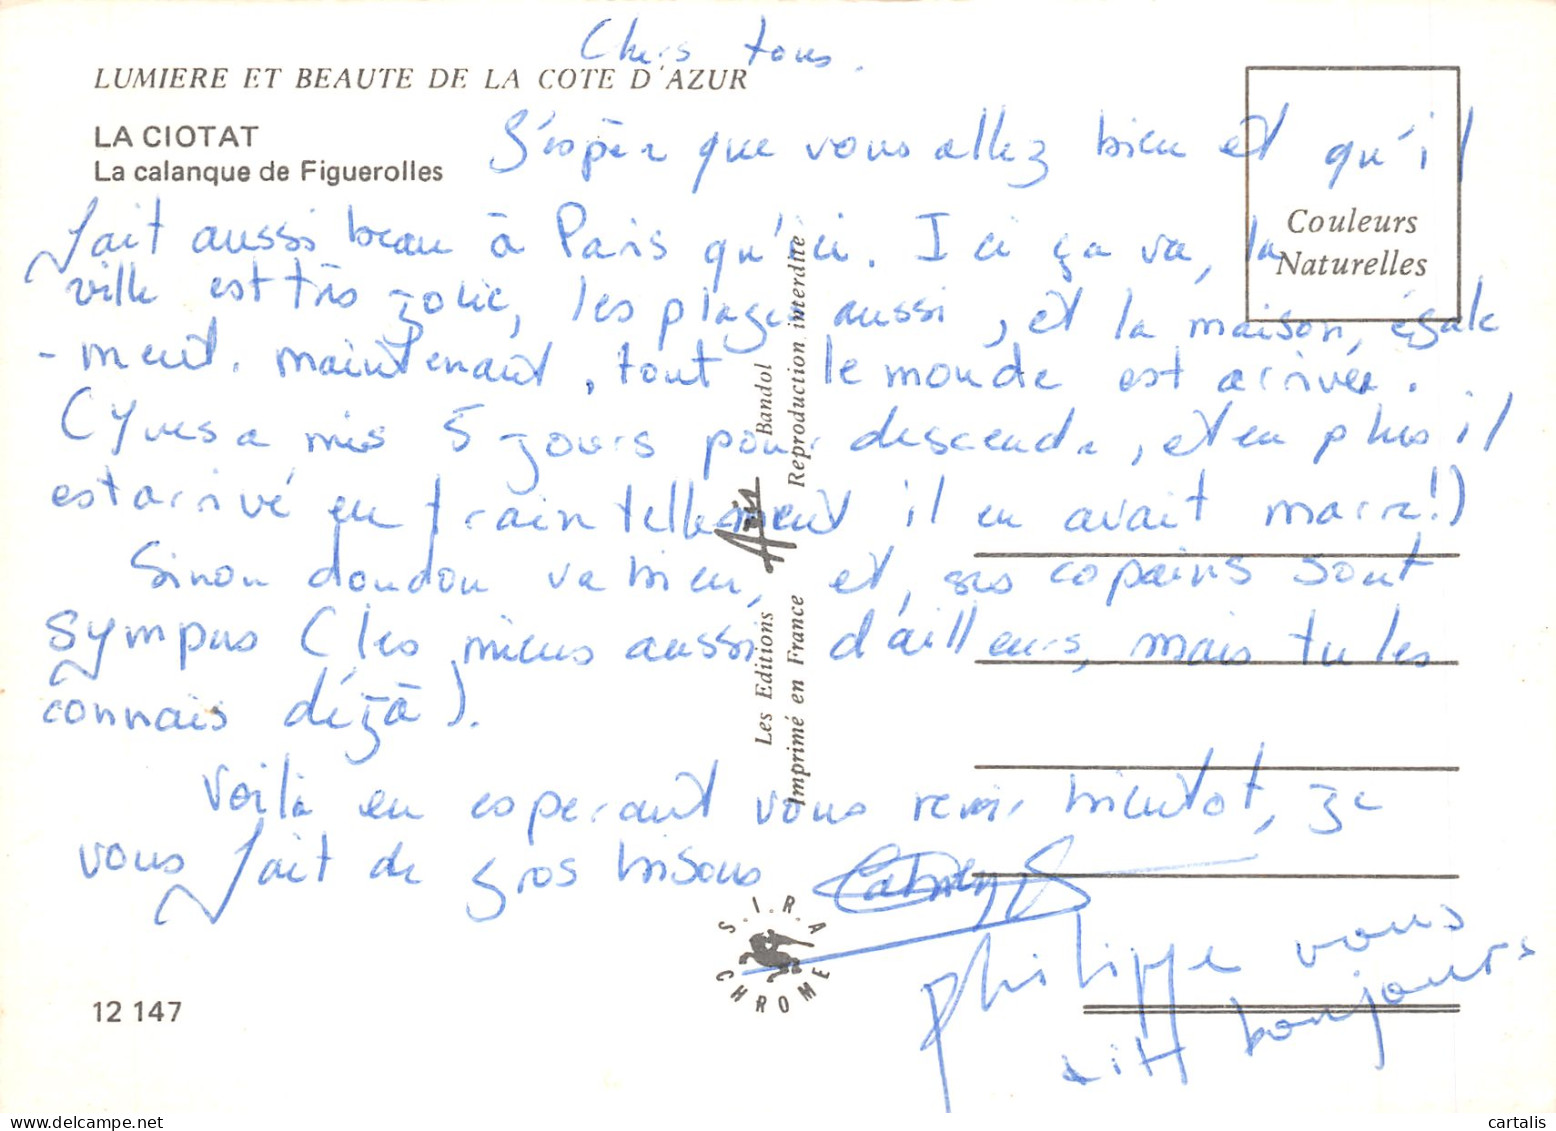 Chers tous.
LUMIERE ET BEAUTE DE LA COTE D'AZUR
LA CIOTAT
La calanque de Figuerolles
J'espère que vous allez bien et qu'il
fait aussi beau à Paris qu'ici. Ici ça va, la
ville est très jolie, les plages aussi, et la maison, égale
-ment. maintenant, tout le monde est arrivée.
(Yves a mis 5 jours pour descendre, et en plus il
est arrivé en train tellement il en avait marre!)
Sinon doudou va bien, et, ses copains sont
sympas (les miens aussi d'ailleurs, mais tu les
connais déjà).
Voilà en esperant vous revoir bientot, je
vous fait de gros bisous
Philippe vous
bonjours
Couleurs
Naturelles
Les Editions Aris Bandol
Imprimé en France Reproduction interdite
S.I.R.A
CHROME
12 147
cartalis